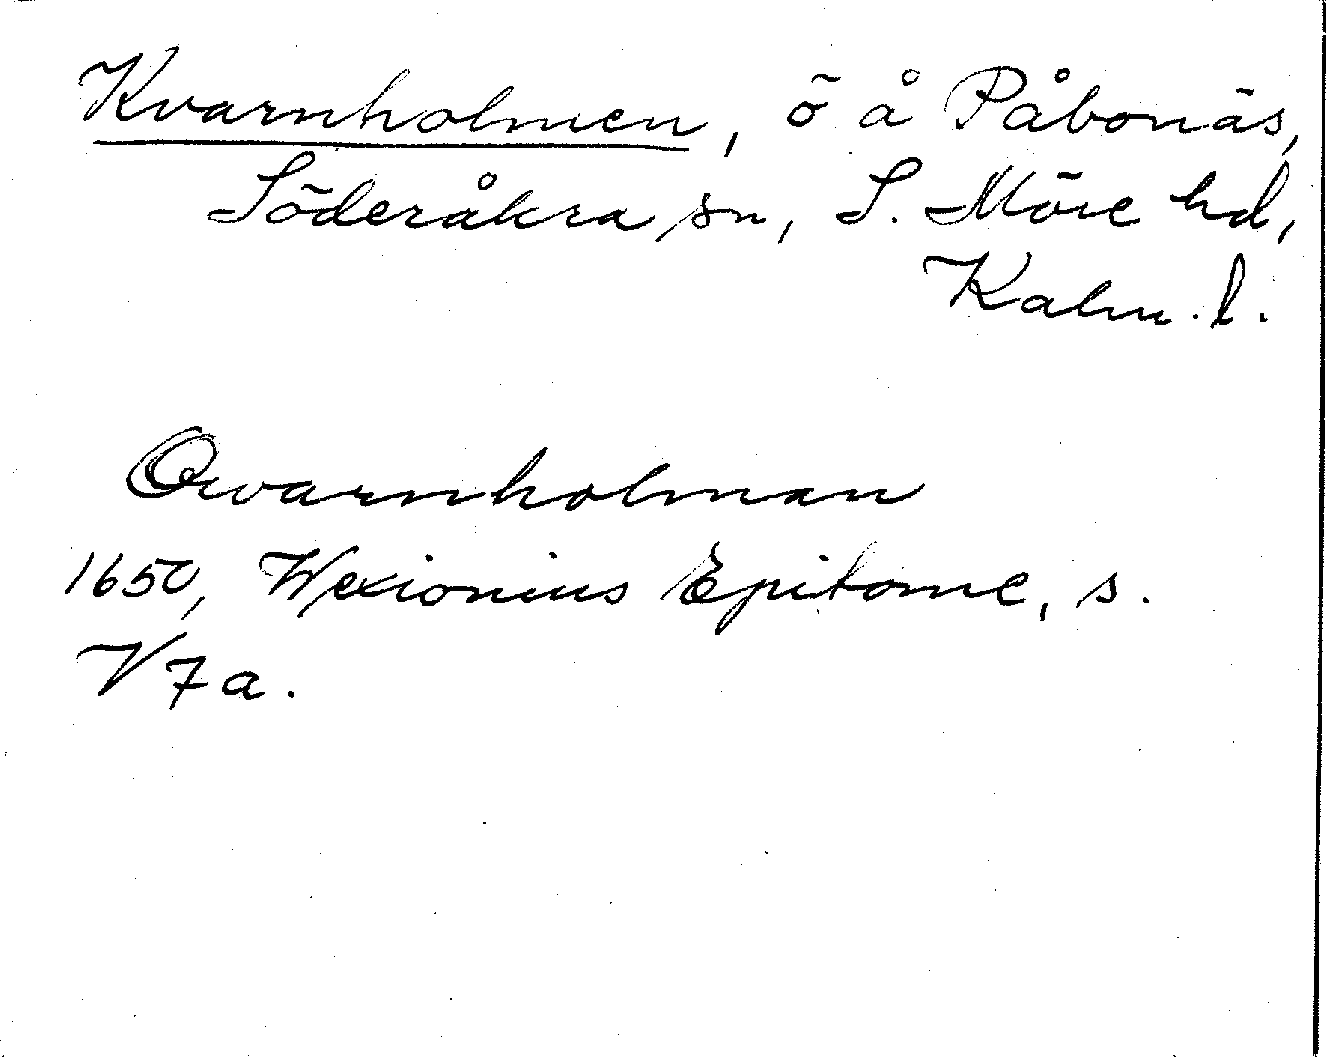 Kvarnholmen, ö å Påbonäs,
Söderåkra sn, S. Möre hd,
Kalm. l.
Qwarnholman
1650, Wexionius Epitome, s.
V 7 a.